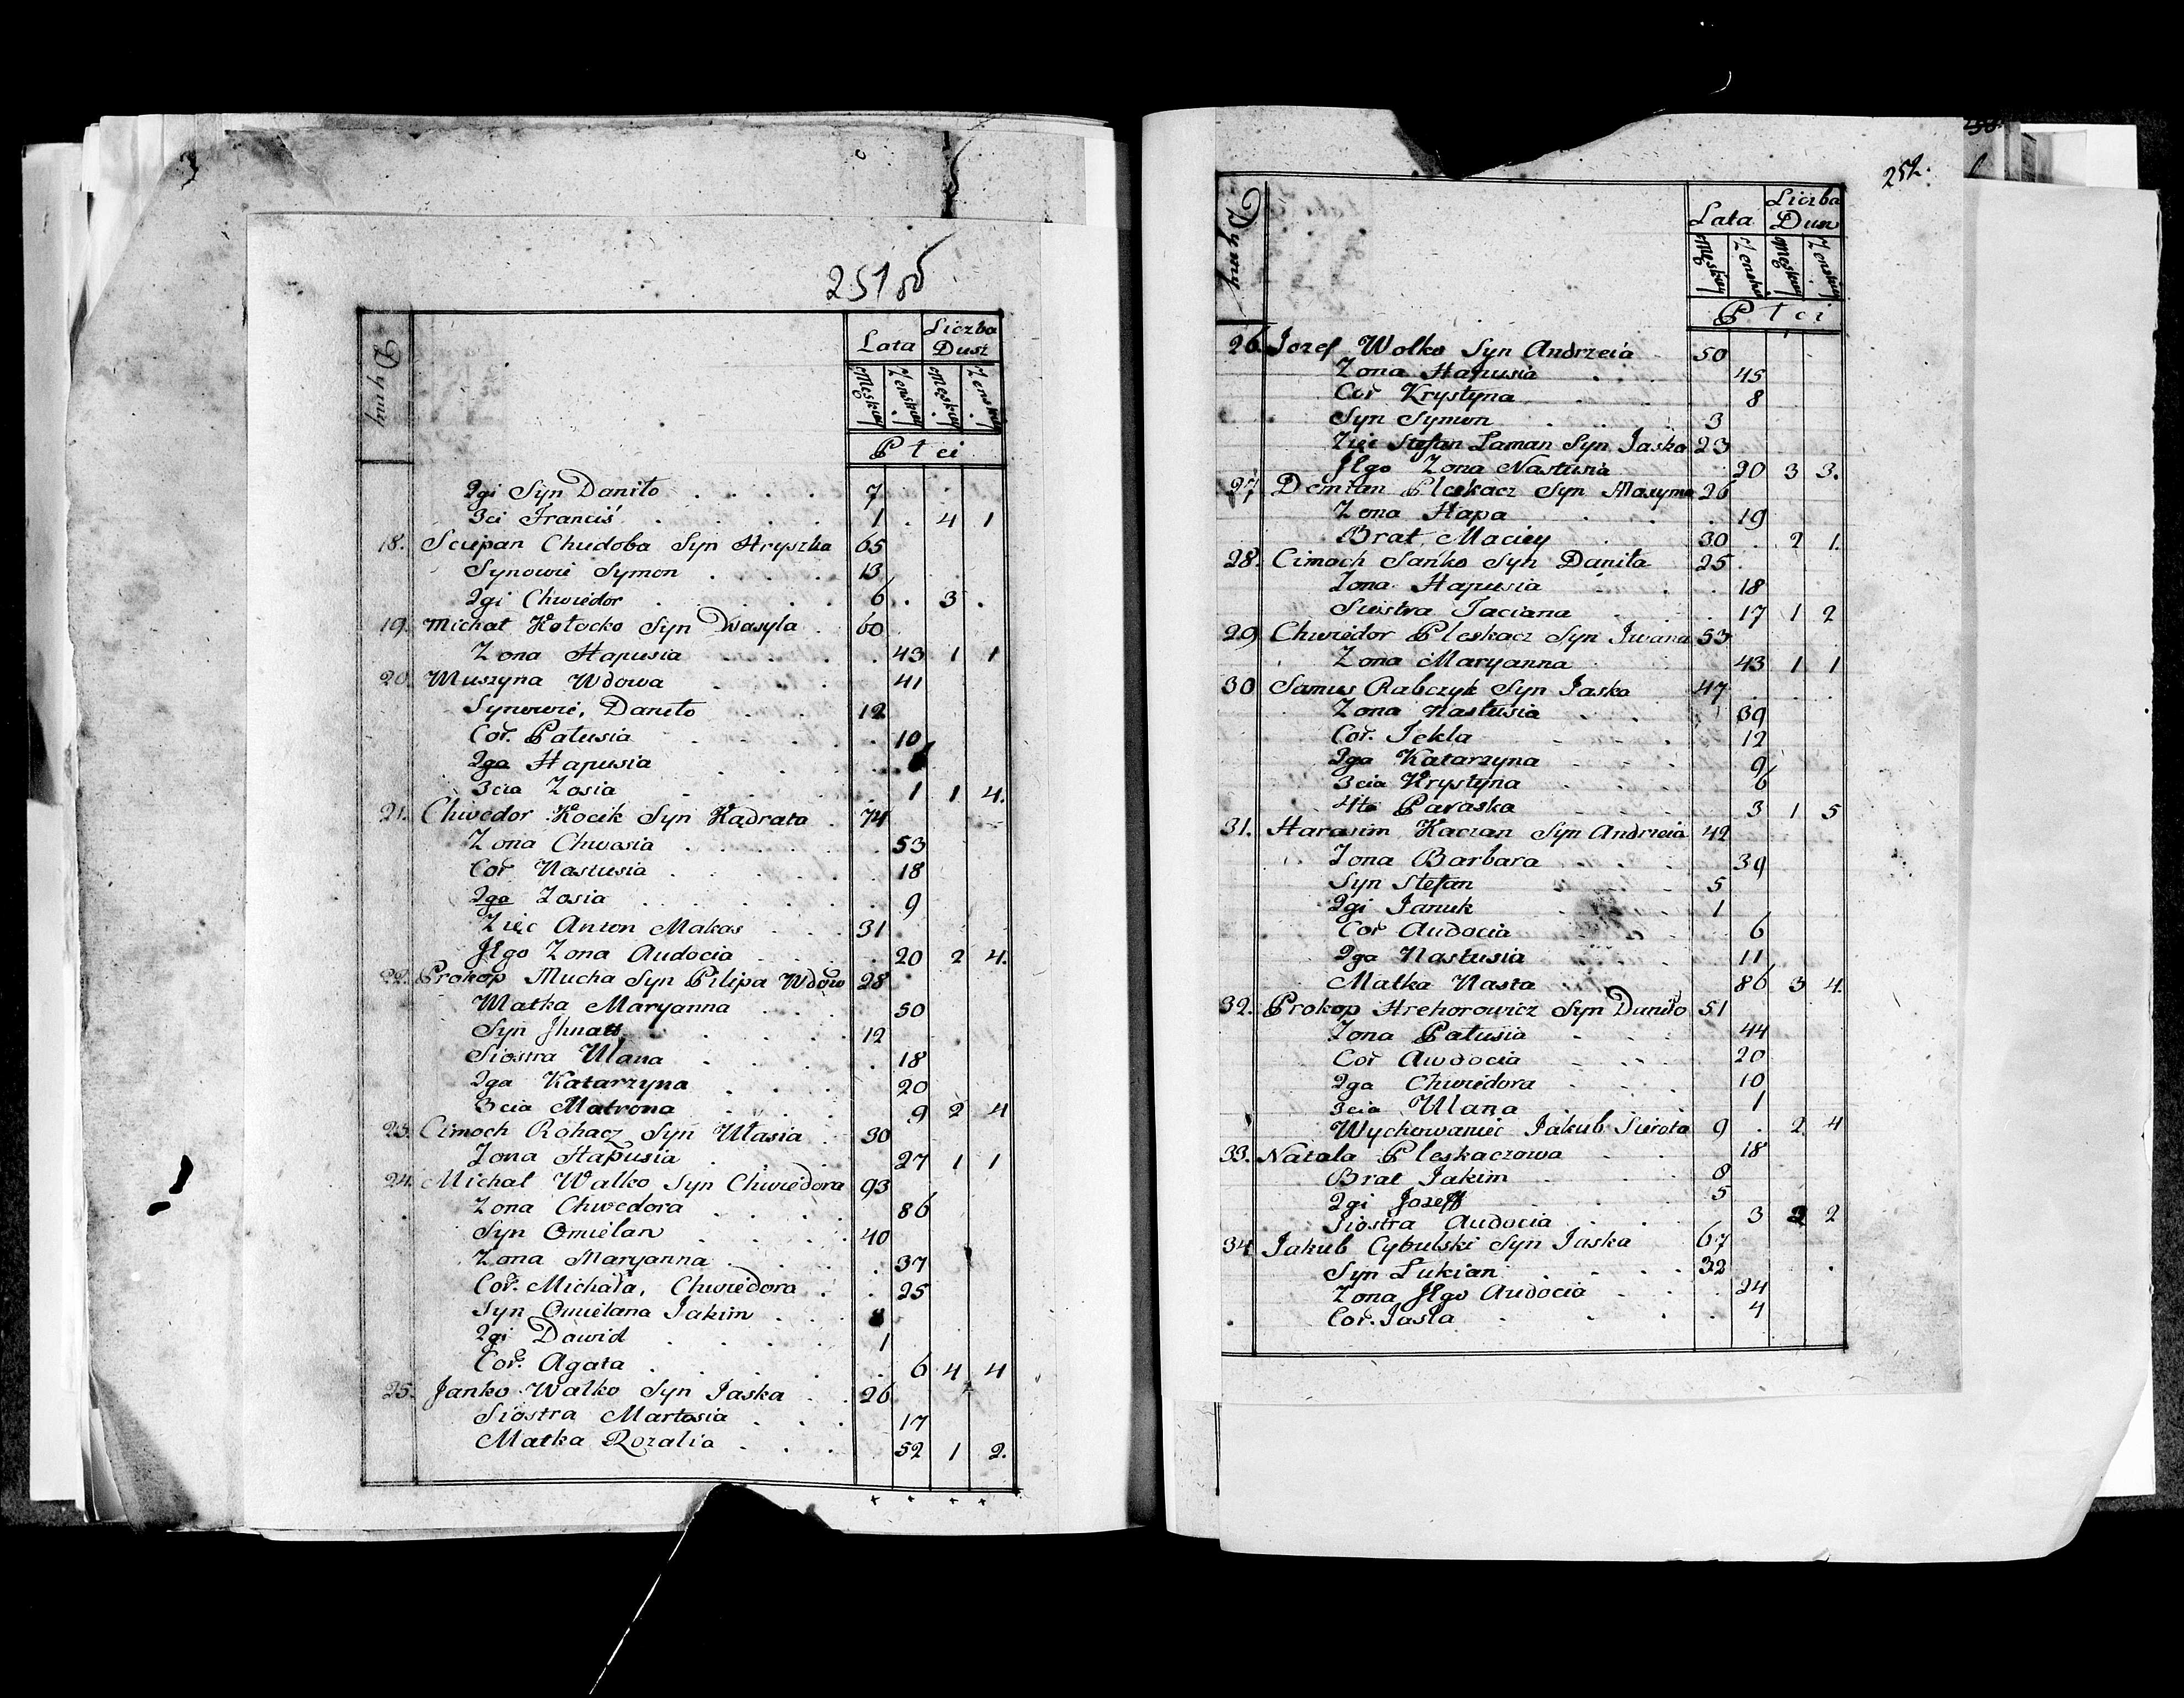 251 об
Dymy
Lata
Liczba Dusz
Męskiey
Zenskiey
Męskiey
Zenskiey
Płci
2gi Syn Daniło . . . . 7
3ci Franciś . . . . 1 . 4 1
18. Sciepan Chudoba Syn Hryszka 65
Synowie Symon . . . 13
2gi Chwiedor . . . . 6 . 3 .
19. Michał Kołocko Syn Wasyla . 60
Zona Hapusia . . . . 43 1 1
20. Muszyna Wdowa . . . 41
Synowie, Daniło . . 12
Cor. Pałusia . . . . 10
2ga Hapusia . . . .
3cia Zosia . . . . 1 1 4.
21. Chwedor Kocik Syn Kądrata . 74
Zona Chwasia . . . . 53
Cor Nastusia . . . . 18
2ga Zosia . . . . 9
Zięc Anton Makas . . . 31
Jego Zona Audocia . . . 20 2 4.
22. Prokop Mucha Syn Pilipa Wdow 28
Matka Maryanna . . . 50
Syn Ihnat . . . . 12
Siostra Ulana . . . . 18
2ga Katarzyna . . . 20
3cia Matrona . . . 9 2 4
23. Cimoch Rohacz Syn Ułasia . 30
Zona Hapusia . . . 27 1 1
24. Michał Walko Syn Chwiedora 93
Zona Chwedora . . . . 86
Syn Omielan . . . . 40
Zona Maryanna . . . . 37
Cor. Michała, Chwiedora . . 25
Syn Omielana Jakim . . . 8
2gi Dawid . . . . 1
Cor. Agata . . . . 6 4 4
25. Janko Wałko Syn Jaska . . 26
Siostra Martosia . . . 17
Matka Rozalia . . . 52 1 2.
252.
Dymy
Lata
Liczba Dusz
Męskiey
Zenskiey
Męskiey
Zenskiey
Płci
26 Jozef Wolko Syn Andrzeia . 50
Zona Hapusia . . . 45
Cor Krystyna . . 8
Syn Symon . . . . 3
Zięc Stefan Laman Syn Jaska 23
Jego Zona Nastusia . . 20 3 3.
27. Demian Pleskacz Syn Maxyma 26
Zona Hapa . . . . 19
Brat Maciey . . 30 . 2 1.
28. Cimoch Sańko Syn Daniła 25
Zona Hapusia . . . 18
Siostra Taciana . . . 17 1 2
29 Chwiedor Pleskacz Syn Iwana 53
Zona Maryanna . . . 43 1 1
30 Samus Rabczyk Syn Jaska 47 . . .
Zona Nastusia . . . 39
Cor. Tekla . . . 12
2ga Katarzyna . . . 9
3cia Krystyna . . . 6
4ta Paraska . . . 3 1 5
31. Harasim Kaczan Syn Andrzeia 42
Zona Barbara . . . 39
Syn Stefan . . . 5
2gi Januk . . . 1
Cor Audocia . . 6
2ga Nastusia . . . 11
Matka Nasta . . . 86 3 4.
32. Prokop Hrehorowicz Syn Daniło 51
Zona Pałusia . . . 44
Cor Awdocia . . . 20
2ga Chwiedora . . . 10
3cia Ulana . . . 1
Wychowaniec Jakub Sierota 9 . 2 4
33. Natala Pleskaczowa . . 18
Brat Jakim . . . 8
2gi Jozeff 5
Siostra Audocia . . 3 2 2
34 Jakub Cybulski Syn Jaska 67
Syn Lukian . . . . 32
Zona Jego Audocia . . . 24
Cor. Jasla . . . . 4